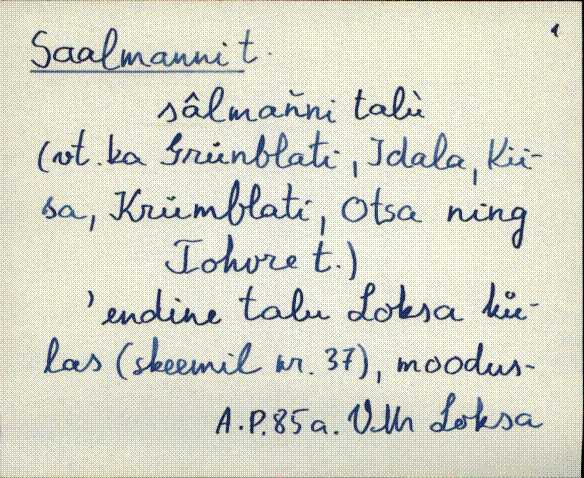 1
Saalmanni t.
sâlmaňni talù
(vt. ka Grünblati, Idala, Kii-
sa, Krümblati, Otsa ning
Tohvre t.)
'endine talu Loksa kü-
las (skeemil nr. 37), moodus-
A.P. 85a. VMr Loksa